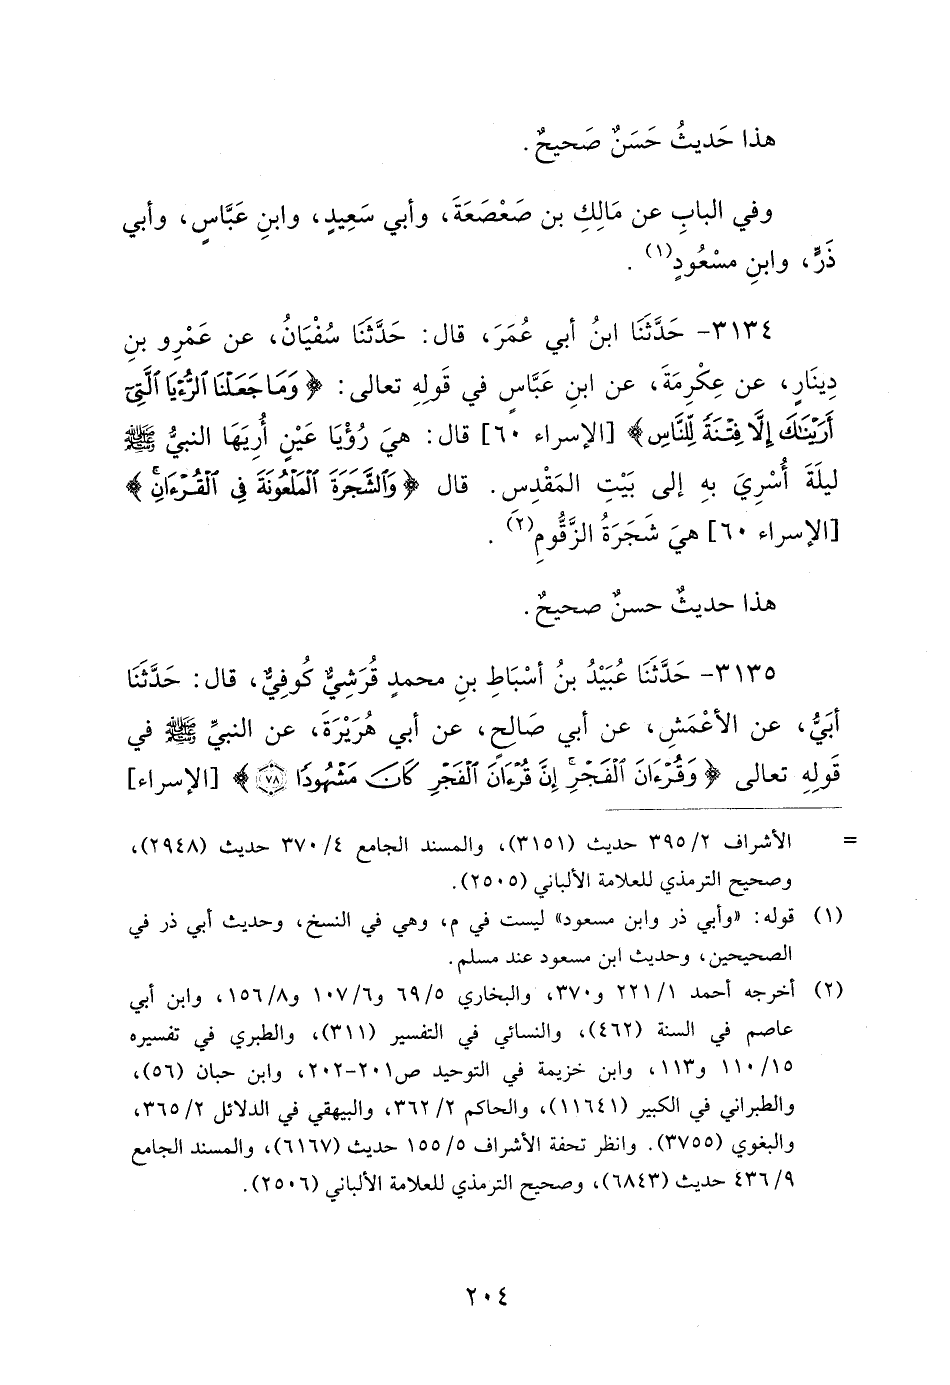 هذا حَديثُ حَسَنٌ صَحيحٌ.
وفي البابِ عن مَالِكِ بن صَعْصَعَةَ، وأبي سَعِيدٍ، وابنِ عَبَّاسٍ، وأبي
ذَرٍّ، وابنِ مسْعُودٍ(١).
٣١٣٤- حَدَّثَنَا ابنُ أبي عُمَرَ، قال: حَدَّثَنَا سُفْيَانُ، عن عَمْرِو بنِ
دِينَارٍ، عن عِكْرِمَةَ، عن ابنِ عَبَّاسٍ في قَولِهِ تعالى: ﴿وَمَا جَعَلْنَا ٱلرُّءْيَا ٱلَّتِىٓ
أَرَيْنَٰكَ إِلَّا فِتْنَةً لِّلنَّاسِ﴾ [الإسراء ٦٠] قال: هيَ رُؤْيَا عَيْنٍ أُرِيَهَا النبيُّ ﷺ
ليلَةَ أُسْرِيَ بهِ إلى بَيْتِ المَقْدِسِ. قال ﴿وَٱلشَّجَرَةَ ٱلْمَلْعُونَةَ فِى ٱلْقُرْءَانِ ۚ﴾
[الإسراء ٦٠] هيَ شَجَرَةُ الزَّقُّومِ(٢).
هذا حديثٌ حسنٌ صحيحٌ.
٣١٣٥- حَدَّثَنَا عُبَيْدُ بنُ أسْبَاطِ بنِ محمدٍ قُرَشِيٌّ كُوفِيٌّ، قال: حَدَّثَنَا
أبَيُّ، عن الأعْمَشِ، عن أبي صَالحٍ، عن أبي هُرَيْرَةَ، عن النبيِّ ﷺ في
قَولِهِ تعالى ﴿وَقُرْءَانَ ٱلْفَجْرِ ۖ إِنَّ قُرْءَانَ ٱلْفَجْرِ كَانَ مَشْهُودًا ٧٨﴾ [الإسراء]
= الأشراف ٢/ ٣٩٥ حديث (٣١٥١)، والمسند الجامع ٤/ ٣٧٠ حديث (٢٩٤٨)،
وصحيح الترمذي للعلامة الألباني (٢٥٠٥).
(١) قوله: «وأبي ذر وابن مسعود» ليست في م، وهي في النسخ، وحديث أبي ذر في
الصحيحين، وحديث ابن مسعود عند مسلم.
(٢) أخرجه أحمد ١/ ٢٢١ و٣٧٠، والبخاري ٥/ ٦٩ و٦/ ١٠٧ و٨/ ١٥٦، وابن أبي
عاصم في السنة (٤٦٢)، والنسائي في التفسير (٣١١)، والطبري في تفسيره
١٥/ ١١٠ و١١٣، وابن خزيمة في التوحيد ص٢٠١-٢٠٢، وابن حبان (٥٦)،
والطبراني في الكبير (١١٦٤١)، والحاكم ٢/ ٣٦٢، والبيهقي في الدلائل ٢/ ٣٦٥،
والبغوي (٣٧٥٥). وانظر تحفة الأشراف ٥/ ١٥٥ حديث (٦١٦٧)، والمسند الجامع
٩/ ٤٣٦ حديث (٦٨٤٣)، وصحيح الترمذي للعلامة الألباني (٢٥٠٦).
٢٠٤